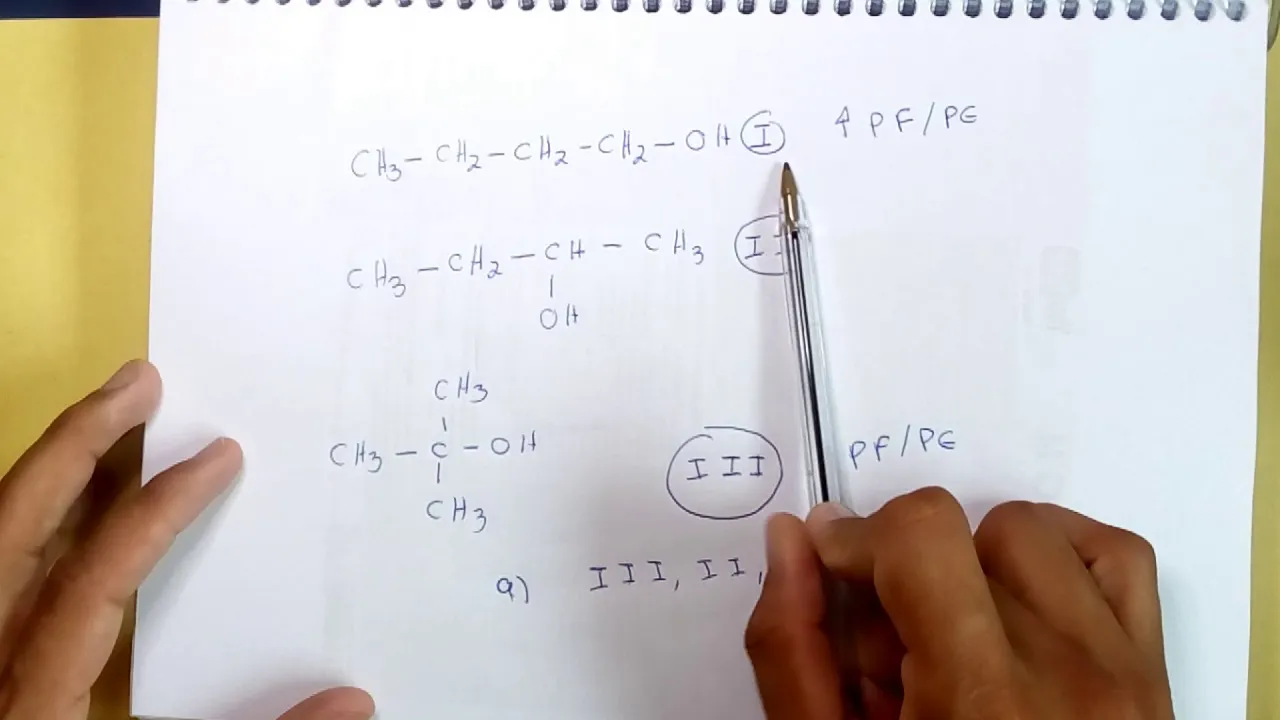 CH3 - CH2 - CH2 - CH2 - OH I ↑ PF/PE
CH3 - CH2 - CH - CH3 II
OH
CH3
CH3 - C - OH
CH3
III PF/PE
a) III, II,